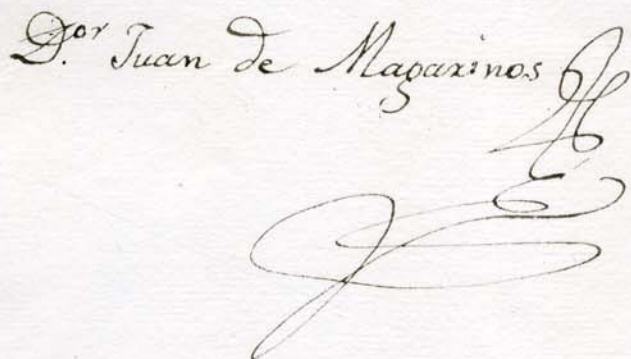 D.or Juan de Magarinos